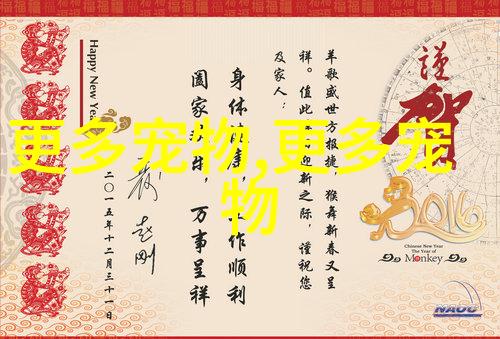 更多宠物,更多宠
物
謹賀
2016
Chinese New Year
The Year of
Monkey
NAOC
羊歌盛世方报捷 猴舞新春又呈
祥。值此 迎新之际，谨祝您
及家人：
身体 ，作顺利
阖家 ，万事呈祥
赵刚
二〇一五年十二月三十一日
Happy New Year